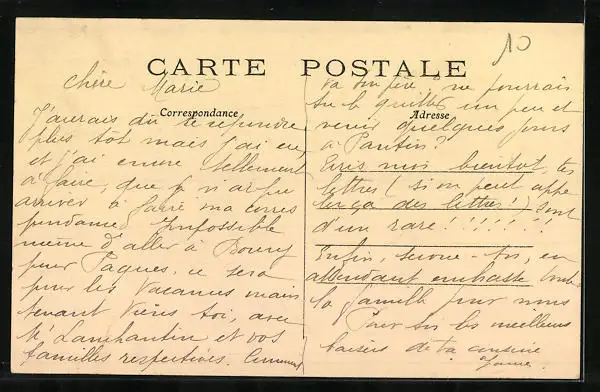 10
CARTE POSTALE
Correspondance
Adresse
Chère Marie
J'aurais dû te répondre
plus tôt mais j'ai eu,
et j'ai encore tellement
à faire, que je n'ai pu
arriver à faire ma corres
pondance. Impossible
même d'aller à Boury
pour Pâques, ce sera
pour les vacances mais
tenant Viens toi, avec
et vos
familles respectives. Comment
va ton père, ne pourrais
tu le quitter un peu et
venir quelques jours
à Pantin?
Ecris moi bientôt, tes
lettres (si on peut appe
ler ça des lettres!) sont
d'un rare!!!!!!
Enfin, secoue-toi, en
attendant embrasse toute
la famille pour nous
Pour toi les meilleurs
baisers de ta cousine